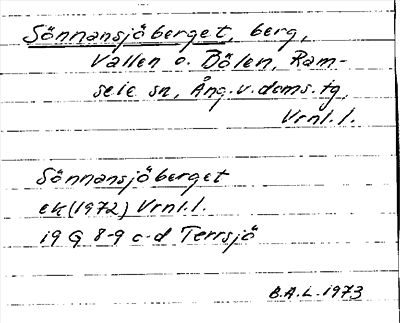 Sönnansjöberget, berg,
Vallen o. Bölen, Ram-
sele sn, Ång. v. doms. tg,
Vrnl.l.
Sönnansjöberget
ek (1972) Vrnl.l.
19 G 8-9 c-d Terrsjö
B.A.L. 1973